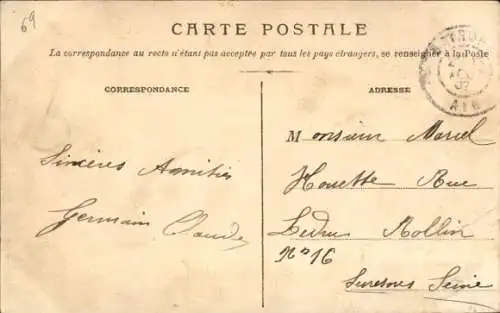 69
CARTE POSTALE
La correspondance au recto n'étant pas acceptée par tous les pays étrangers, se renseigner à la Poste
CORRESPONDANCE
Sincères Amitiés
Germain Claude
ADRESSE
Monsieur Marcel
Houette Rue
Ledru Rollin
No 16
Suresnes Seine
AIN